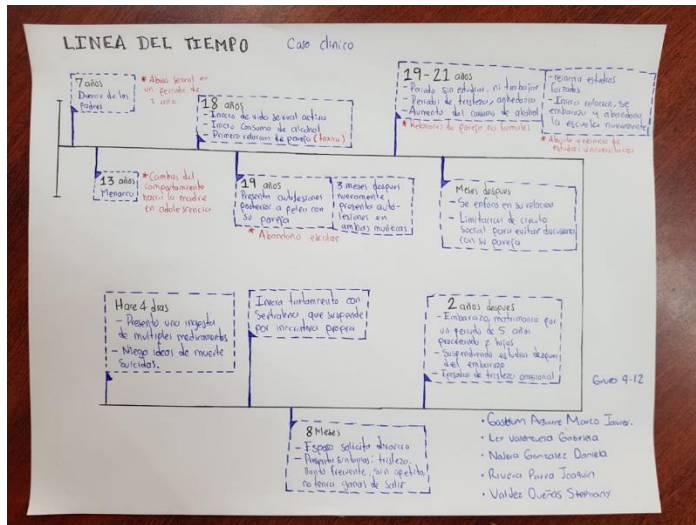 LINEA DEL TIEMPO Caso clinico
7 años
Divorcio de los
padres
* Abuso sexual en
un periodo de
1 año
18 años
- Inicio de vida sexual activa
- Inicio consumo de alcohol
- Primera relacion de pareja (toxica)
19-21 años
- Periodo sin estudiar, ni trabajar
- Periodos de tristeza, anhedonia
- Aumento del consumo de alcohol
* Relaciones de pareja no formales
- retoma estudios
forzados
- Inicia relacion, se
embaraza y abandona
la escuela nuevamente
* Aborto y reinicio de
estudios universitarios
13 años
Menarca
* Cambios del
comportamiento
hacia la madre
en adolescencia
19 años
Presento autolesiones
posterior a pelea con
su pareja
* Abandono escolar
3 meses despues
nuevamente
presenta auto-
lesiones en
ambas muñecas
Meses despues
- Se enfoco en su relacion
- Limitacion de circulo
Social para evitar discusiones
con su pareja
Hace 4 dias
- Presento una ingesta
de multiples medicamentos
- Niega ideas de muerte
suicidas.
Inicia tratamiento con
Sertralina que suspende
por iniciativa propia
2 años despues
- Embarazo, matrimonio por
un periodo de 5 años
procreando 2 hijos
- Suspendiendo estudios despues
del embarazo
- Episodios de tristeza ocasional
8 Meses
- Esposo solicita divorcio
- Presenta sintomas: tristeza,
llanto frecuente, sin apetito,
no tenia ganas de salir
Grupo 9-12
• Gastelum Aguirre Marco Javier.
• Ley Valenzuela Gabriela
• Najera Gonzalez Daniela
• Rivera Parra Joaquin
• Valdez Dueñas Stephany